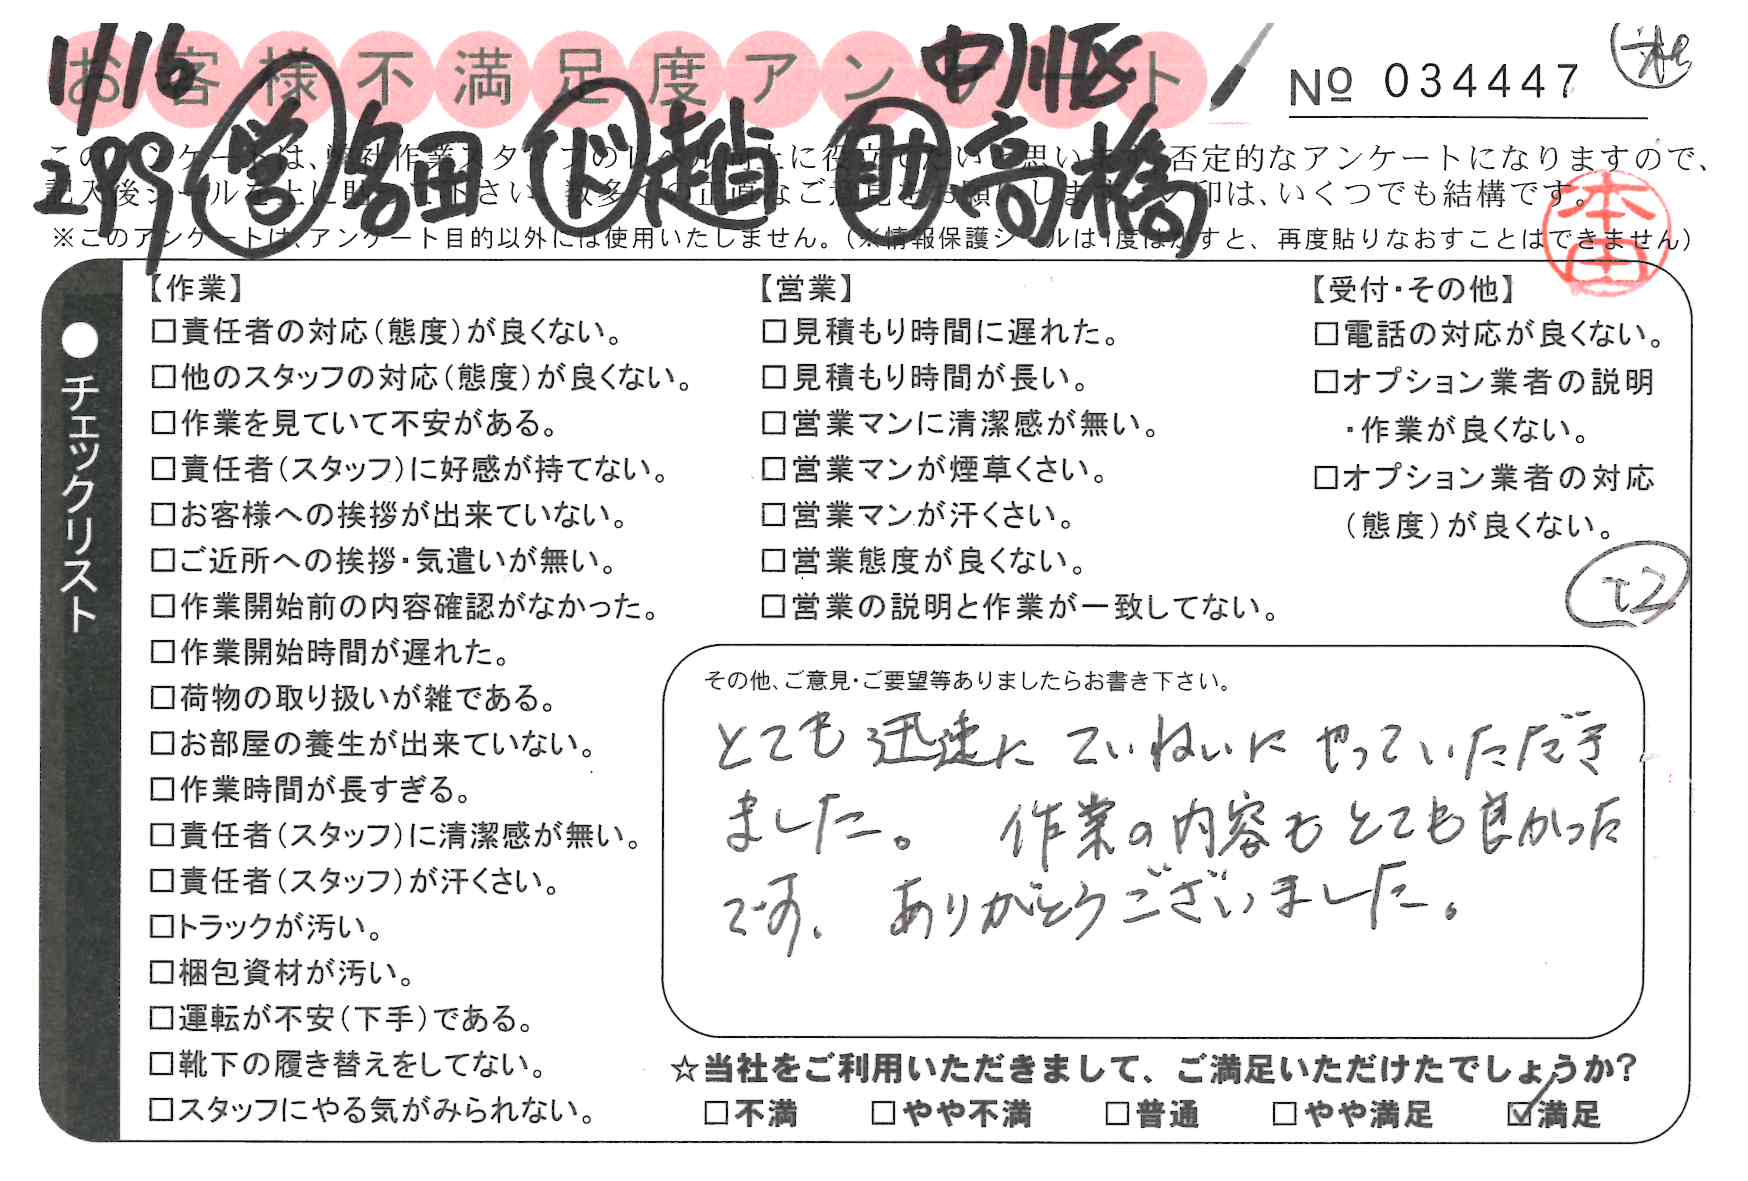 1/16 中川区
お客様不満足度アンケート
№ 034447
299 営 多田 ド 趙 助 高橋
このアンケートは、弊社作業スタッフのレベル向上に役立てたいと思います。否定的なアンケートになりますので、
記入後シールを上に貼って下さい。数多くの正直なご意見をお願いします。レ印は、いくつでも結構です。
※このアンケートは、アンケート目的以外には使用いたしません。(※情報保護シールは1度はがすと、再度貼りなおすことはできません)
本田
●チェックリスト
【作業】
□責任者の対応(態度)が良くない。
□他のスタッフの対応(態度)が良くない。
□作業を見ていて不安がある。
□責任者(スタッフ)に好感が持てない。
□お客様への挨拶が出来ていない。
□ご近所への挨拶・気遣いが無い。
□作業開始前の内容確認がなかった。
□作業開始時間が遅れた。
□荷物の取り扱いが雑である。
□お部屋の養生が出来ていない。
□作業時間が長すぎる。
□責任者(スタッフ)に清潔感が無い。
□責任者(スタッフ)が汗くさい。
□トラックが汚い。
□梱包資材が汚い。
□運転が不安(下手)である。
□靴下の履き替えをしてない。
□スタッフにやる気がみられない。
【営業】
□見積もり時間に遅れた。
□見積もり時間が長い。
□営業マンに清潔感が無い。
□営業マンが煙草くさい。
□営業マンが汗くさい。
□営業態度が良くない。
□営業の説明と作業が一致してない。
【受付・その他】
□電話の対応が良くない。
□オプション業者の説明
・作業が良くない。
□オプション業者の対応
(態度)が良くない。
その他、ご意見・ご要望等ありましたらお書き下さい。
とても迅速に ていねいに やっていただき
ました。 作業の内容もとても良かった
です。 ありがとうございました。
☆当社をご利用いただきまして、ご満足いただけたでしょうか?
□不満 □やや不満 □普通 □やや満足 ☑満足